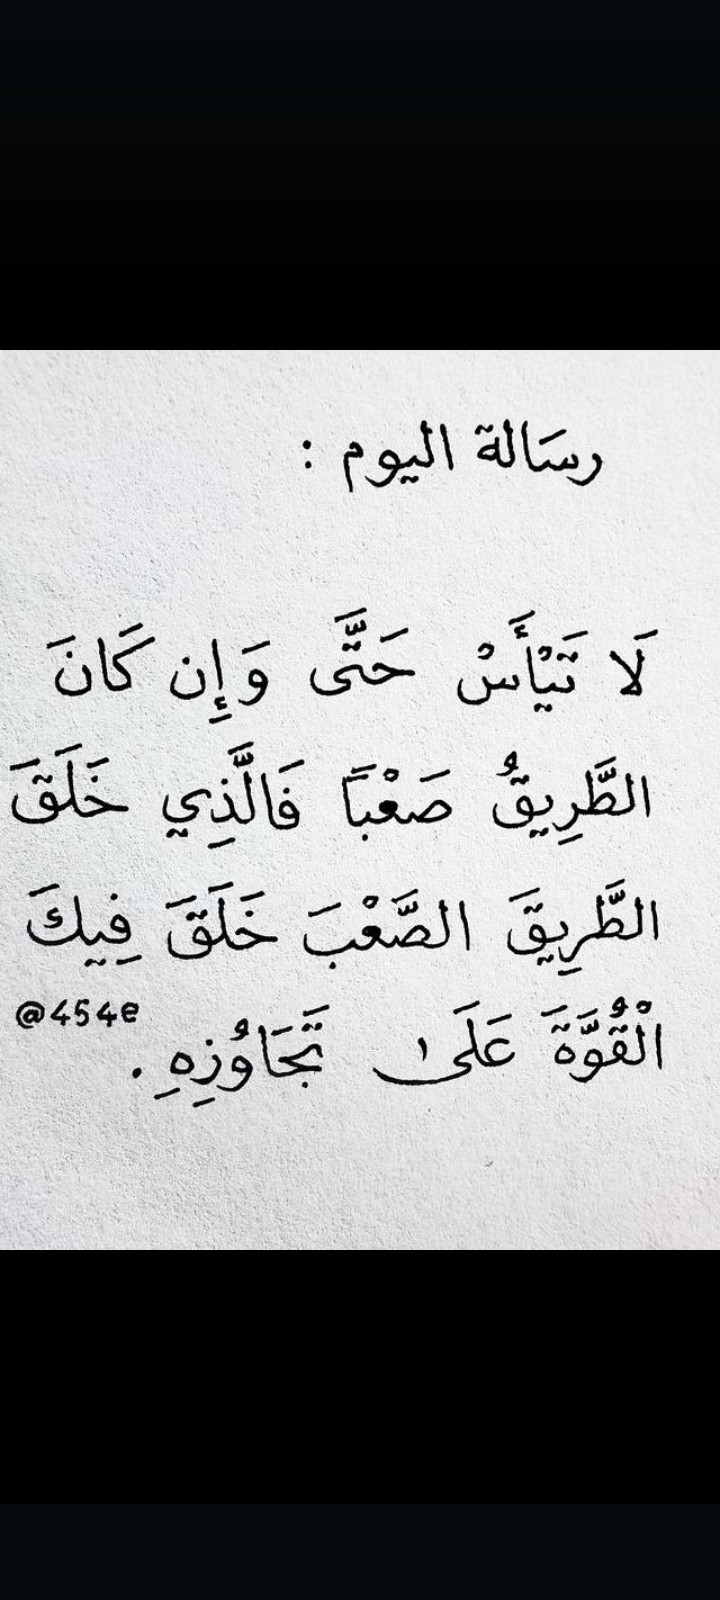 رسَالة اليوم :
لَا تَيْأَسْ حَتَّى وَإِن كَانَ
الطَّرِيقُ صَعْباً فَالَّذِي خَلَقَ
الطَّرِيقَ الصَّعْبَ خَلَقَ فِيكَ
الْقُوَّةَ عَلَىٰ تَجَاوُزِهِ .
@454e